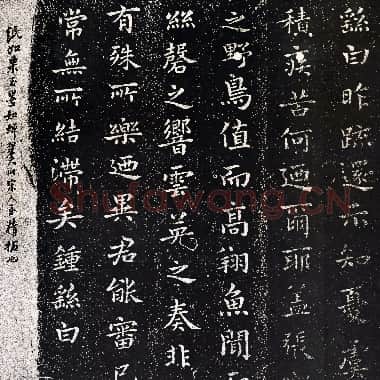 繇白昨疏還示知憂虞
積疾苦何迺爾耶蓋張
之野鳥值而高翔魚聞而
絲磬之響雲英之奏非
有殊所樂迺異君能審己
常無所結滯矣鍾繇白
紙如墨如宋人精拓也
Shufawang.CN